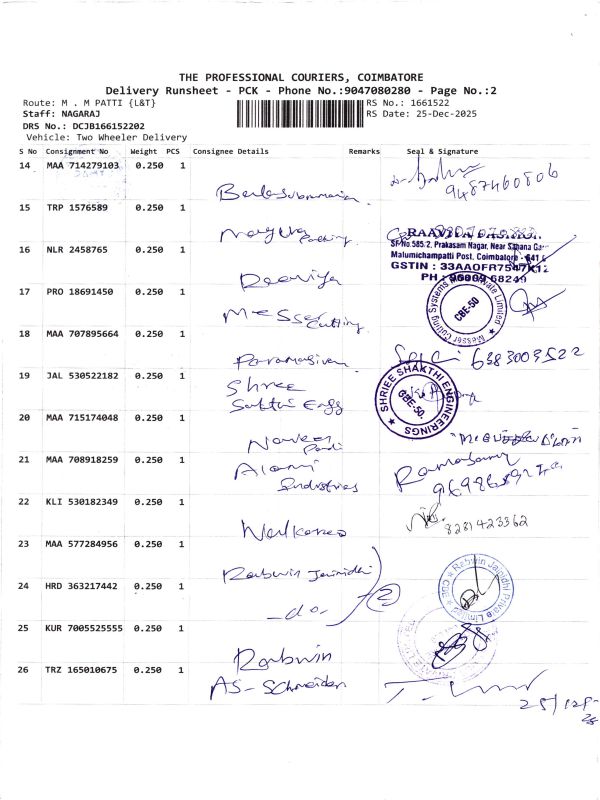 THE PROFESSIONAL COURIERS, COIMBATORE
Delivery Runsheet - PCK - Phone No.:9047080280 - Page No.:2
Route: M . M PATTI {L&T}
RS No.: 1661522
Staff: NAGARAJ
RS Date: 25-Dec-2025
DRS No.: DCJB166152202
Vehicle: Two Wheeler Delivery
S No Consignment No Weight PCS Consignee Details Remarks Seal & Signature
14 MAA 714279103 0.250 1
Balasubramanian
9487460806
15 TRP 1576589 0.250 1
Packing
SF.No.585/2, Prakasam Nagar, Near Sahana
Malumichampatti Post, Coimbatore - 641
GSTIN : 33AAOFR7547K1Z
PH : 90909 68249
16 NLR 2458765 0.250 1
17 PRO 18691450 0.250 1
Messer Cutting
Messer Cutting Systems Private Limited
CBE-50
18 MAA 707895664 0.250 1
Paramasivam
6383003522
19 JAL 530522182 0.250 1
Shree
Sakthi Engg
SHRIEE SHAKTHI ENGINEERINGS
CBE-50.
20 MAA 715174048 0.250 1
Naveen
21 MAA 708918259 0.250 1
Alami
Industries
Ramasamy
22 KLI 530182349 0.250 1
8281423362
23 MAA 577284956 0.250 1
Rabwin Jainidhi
Rabwin Jainidhi Private Limited CBE
24 HRD 363217442 0.250 1
-do-
2
25 KUR 7005525555 0.250 1
Rabwin
26 TRZ 165010675 0.250 1
AS-Schneider
25/12/-
25